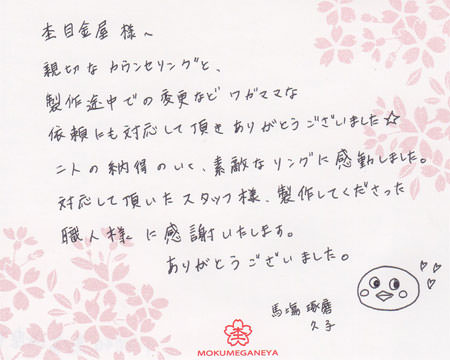 杢目金屋 様〜
親切なカウンセリングと、
製作途中での変更など ワガママな
依頼にも対応して頂きありがとうございました☆
二人の納得のいく、素敵なリングに感動しました。
対応して頂いたスタッフ様、製作してくださった
職人様に感謝いたします。
ありがとうございました。
馬場 琢磨
久子
MOKUMEGANEYA